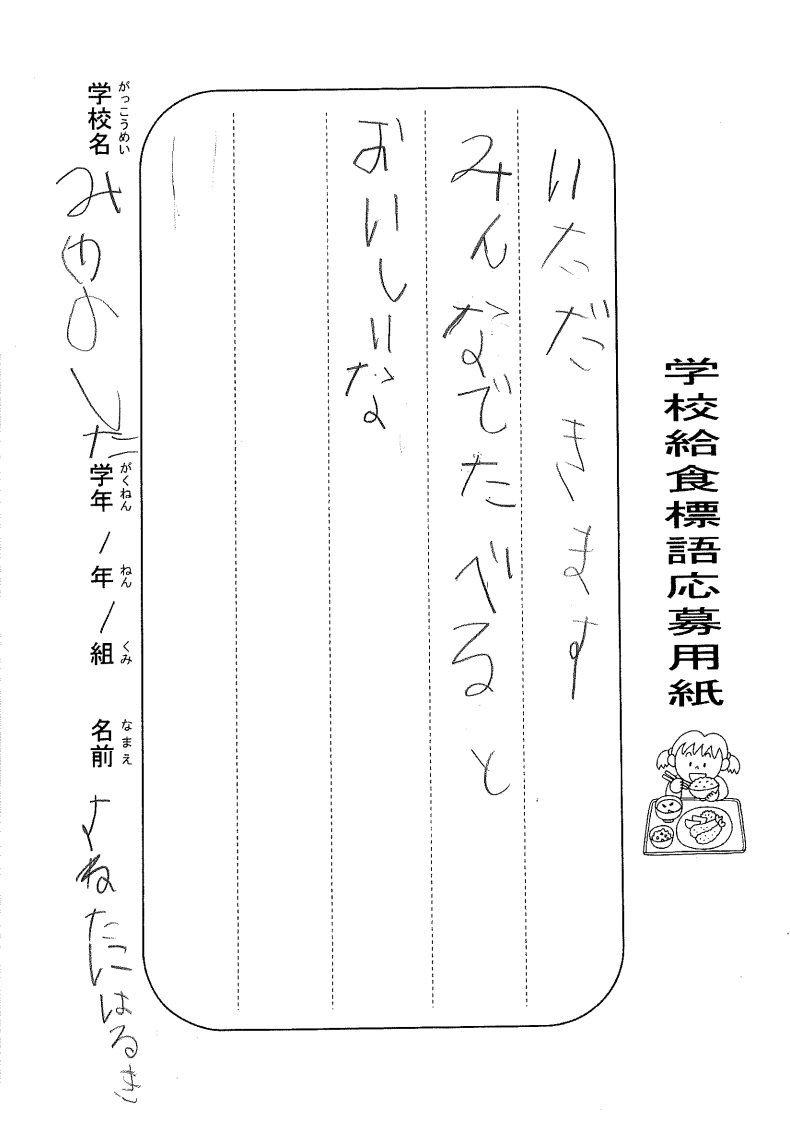 学校給食標語応募用紙
いただきます
みんなでたべると
おいしいな
がっこうめい
学校名 みやのした
がくねん ねん くみ
学年 1年 1組
なまえ
名前 よねたにはるき